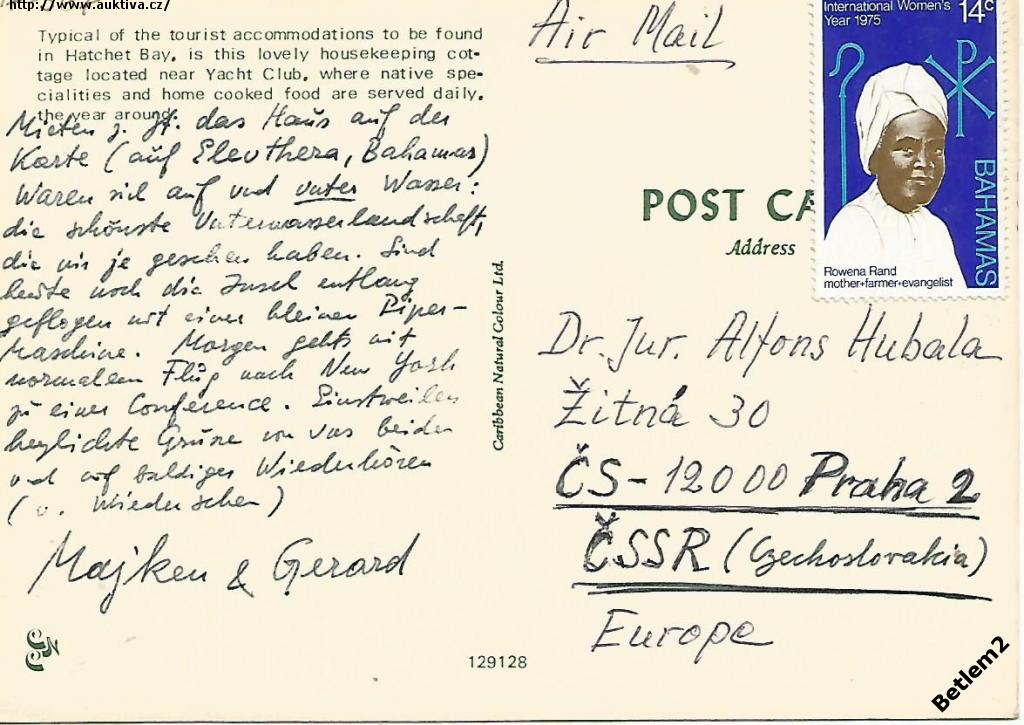 http://www.auktiva.cz/
Typical of the tourist accommodations to be found
in Hatchet Bay, is this lovely housekeeping cot-
tage located near Yacht Club, where native spe-
cialities and home cooked food are served daily,
the year around.
Mieten z. Zt. das Haus auf der
Karte (auf Eleuthera, Bahamas)
Waren viel auf und unter Wasser:
die schönste Unterwasserlandschaft,
die wir je gesehen haben. Sind
heute noch die Insel entlang
geflogen mit einer kleinen Piper-
Maschine. Morgen gehts mit
normalem Flug nach New York
zu einer Conference. Einstweilen
herzlichste Grüsse von uns beiden
und auf baldiges Wiederhören
(u. Wiedersehen)
Majken & Gerard
129128
Caribbean Natural Colour Ltd.
Air Mail
International Women's
Year 1975
14c
BAHAMAS
Rowena Rand
mother+farmer+evangelist
POST CA
Address
Dr. Jur. Alfons Hubala
Žitná 30
ČS - 12000 Praha 2
ČSSR (Czechoslovakia)
Europe
Betlem2